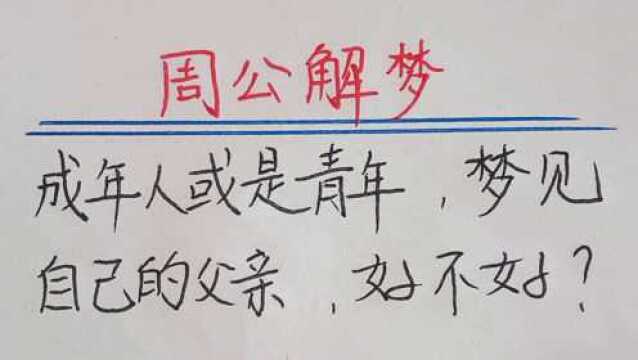 周公解梦
成年人或是青年，梦见
自己的父亲，好不好？